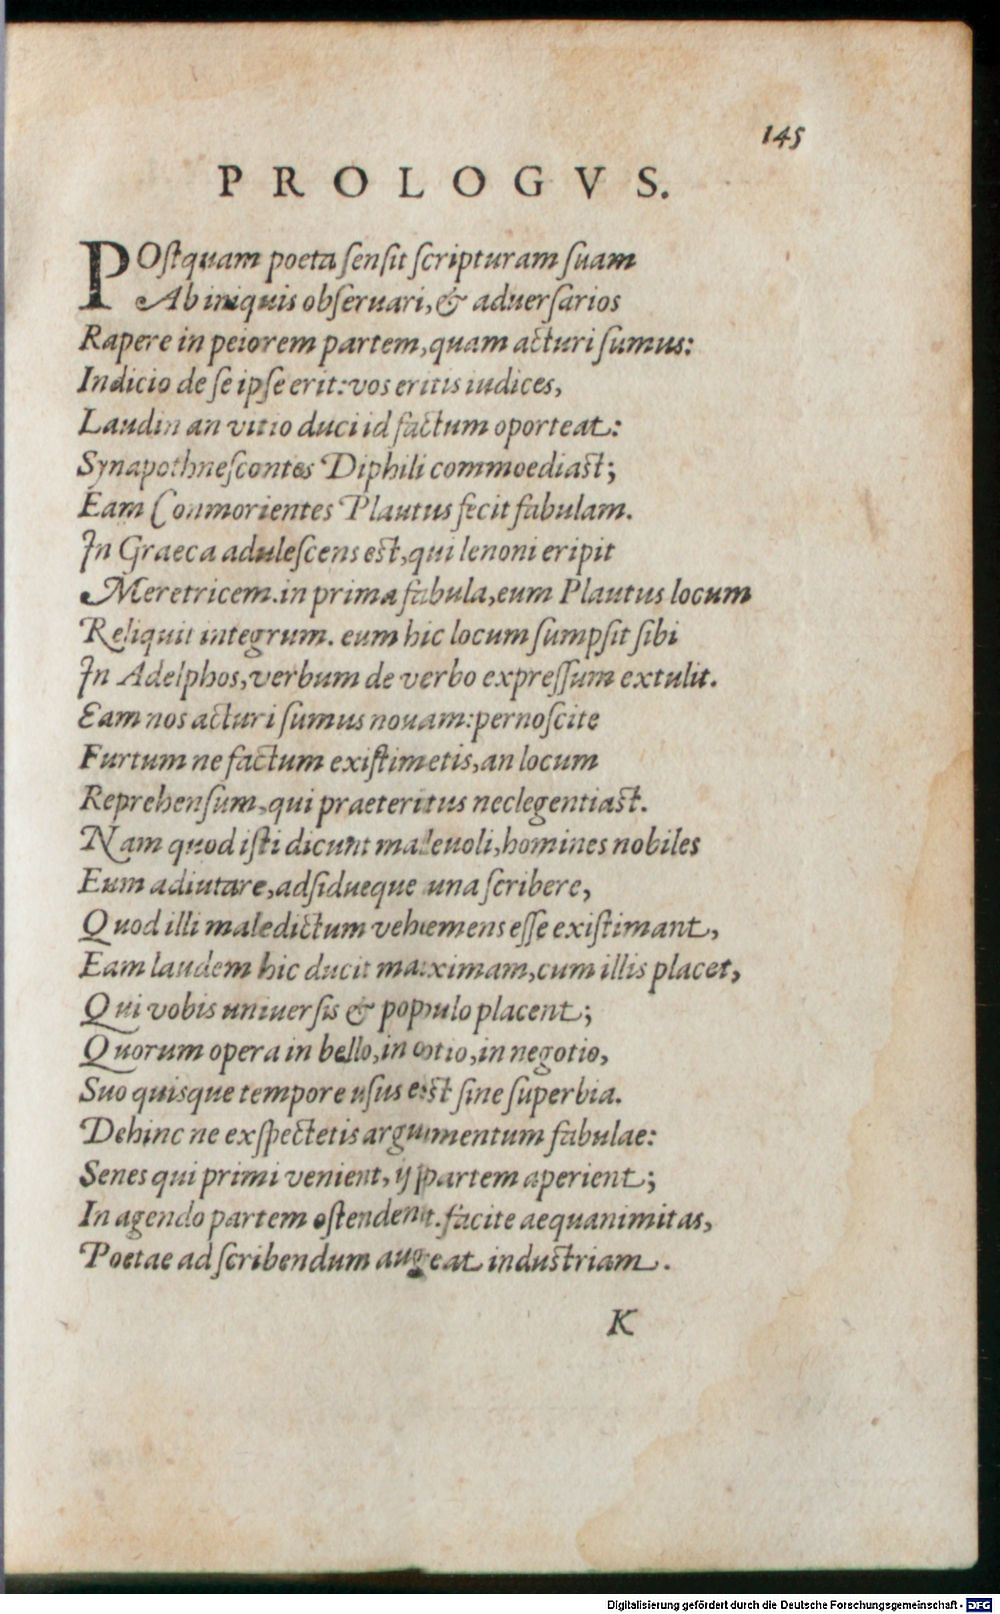 145
PROLOGVS.
POſtquam poeta ſenſit ſcripturam ſuam
Ab iniquis obſeruari, & aduerſarios
Rapere in peiorem partem, quam acturi ſumus:
Indicio de ſe ipſe erit: vos eritis iudices,
Laudin an vitio duci id factum oporteat:
Synapothneſcontes Diphili commoediaſt;
Eam Conmorientes Plautus fecit fabulam.
In Graeca aduleſcens eſt, qui lenoni eripit
Meretricem. in prima fabula, eum Plautus locum
Reliquit integrum. eum hic locum ſumpſit ſibi
In Adelphos, verbum de verbo expreſſum extulit.
Eam nos acturi ſumus nouam: pernoſcite
Furtum ne factum exiſtimetis, an locum
Reprehenſum, qui praeteritus neclegentiaſt.
Nam quod iſti dicunt maleuoli, homines nobiles
Eum adiutare, adſidueque una ſcribere,
Quod illi maledictum vehemens eſſe exiſtimant,
Eam laudem hic ducit maximam, cum illis placet,
Qui vobis uniuerſis & populo placent;
Quorum opera in bello, in otio, in negotio,
Suo quisque tempore uſus eſt ſine ſuperbia.
Dehinc ne exſpectetis argumentum fabulae:
Senes qui primi venient, ij partem aperient;
In agendo partem oſtendent. facite aequanimitas,
Poetae ad ſcribendum augeat induſtriam.
K
Digitalisierung gefördert durch die Deutsche Forschungsgemeinschaft - DFG